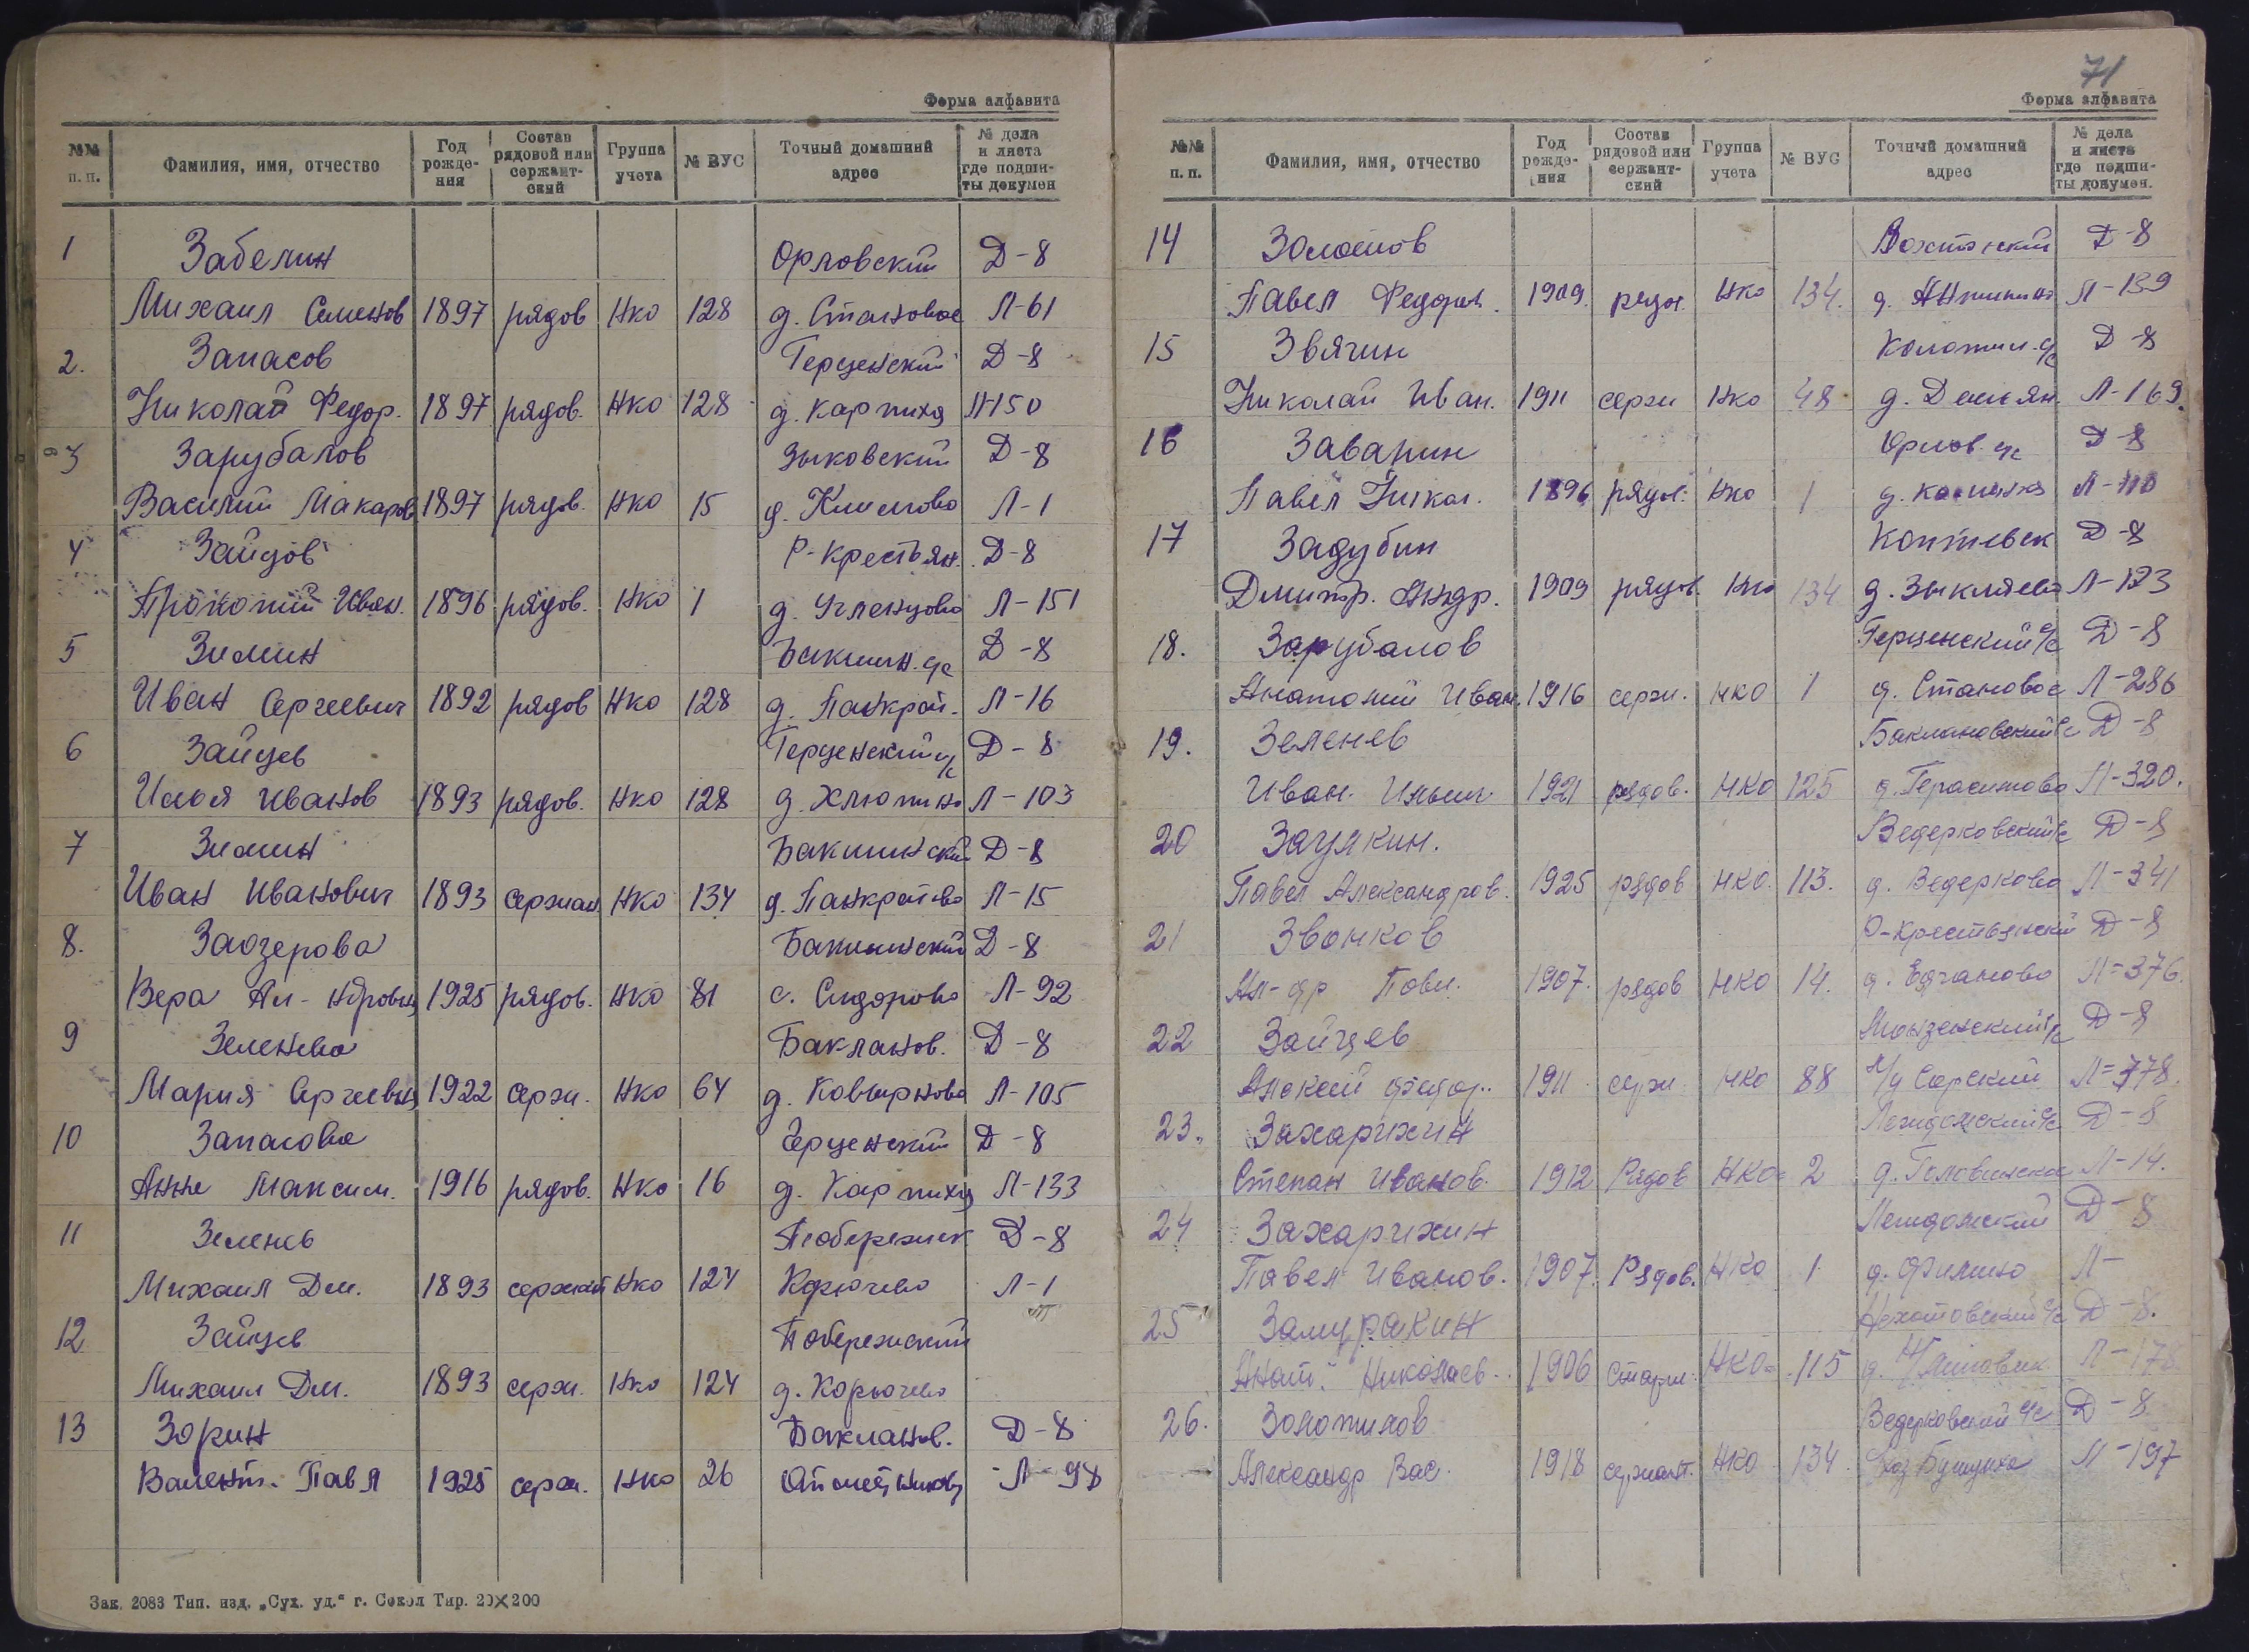 Форма алфавита
№№ п. п. Фамилия, имя, отчество Год рожде-ния Состав рядовой или сержант-ский Группа учета № ВУС Точный домашний адрес № дела и листа где подши-ты докумен
1 Забелин Орловский Д-8
Михаил Семенов 1897 рядов Нко 128 д. Становое Л-61
2. Запасов Герценский Д-8
Николай Федор. 1897 рядов. Нко 128 д. Карпиха Л-150
3 Зарубалов Зыковский Д-8
Василий Макаров 1897 рядов. Нко 15 д. Климово Л-1
4 Зайцов Р-Крестьян. Д-8
Прокопий Иван. 1896 рядов. Нко 1 д. Угленцово Л-151
5 Зимин Бакшин. с/с Д-8
Иван Сергеевич 1892 рядов Нко 128 д. Панкрат. Л-16
6 Зайцев Герценский с/с Д-8
Илья Иванов 1893 рядов. Нко 128 д. Хлюпино Л-103
7 Зимин Бакшинский Д-8
Иван Иванович 1893 сержан Нко 134 д. Панкратово Л-15
8. Заозерова Бакшинский Д-8
Вера Ал-ндровна 1925 рядов. Нко 81 с. Сидорово Л-92
9 Зеленева Бакланов. Д-8
Мария Сергеевна 1922 серж. Нко 64 д. Ковырново Л-105
10 Запасова Герценский Д-8
Анна Максим. 1916 рядов. Нко 16 д. Карпиха Л-133
11 Зеленев Побережск Д-8
Михаил Дм. 1893 сержант Нко 124 Корючево Л-1
12 Зайцев Побережский
Михаил Дм. 1893 серж. Нко 124 д. Корючево
13 Зорин Бакланов. Д-8
Валент. Павл 1925 серж. Нко 26 Л-98
Зак. 2083 Тип. изд. „Сух. уд.“ г. Сокол Тир. 20×200
71
Форма алфавита
№№ п. п. Фамилия, имя, отчество Год рожде-ния Состав рядовой или сержант-ский Группа учета № ВУС Точный домашний адрес № дела и листа где подши-ты докумен.
14 Золотов Д-8
Павел Федор. 1909 рядов. Нко 134. д. Л-139
15 Звягин с/с Д-8
Николай Иван. 1911 серж Нко 48 д. Демьян. Л-169.
16 Заварин Орлов. с/с Д-8
Павел Никол. 1896 рядов. Нко 1 д. Л-110
17 Задубин Коптевск Д-8
Дмитр. Андр. 1909 рядов. Нко 134 д. Зыкляево Л-123
18. Зарубалов Герценский с/с Д-8
Анатолий Иван. 1916 серж. НКО 1 д. Становое Л-286
19. Зеленев Баклановский с/с Д-8
Иван. Ильич 1921 рядов. НКО 125 д. Герасимово Л-320.
20 Заулкин. Ведерковский с/с Д-8
Павел Александров. 1925 рядов НКО. 113. д. Ведерково Л-341
21 Звонков Р-Крестьянский Д-8
Ал-др Павл. 1907. рядов НКО 14. д. Л=376.
22 Зайцев Монзенский с/с Д-8
Алексей Федор. 1911 серж НКО 88 Л=378.
23. Захарихин Леждомский с/с Д-8
Степан Иванов. 1912 Рядов НКО= 2 д. Головинское Л-14.
24 Захарихин Леждомский Д-8
Павел Иванов. 1907. Рядов. НКО 1 д. Филино Л-
25 Замуракин с/с Д-8.
Анат. Николаев. 1906 Старш. НКО= 115 д. Л-178
26. Золотилов Ведерковский с/с Д-8
Александр Вас. 1918 сержант. НКО 134. Л-197